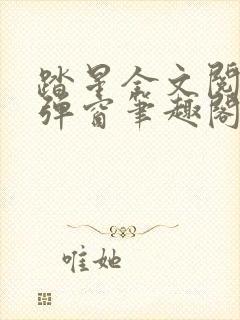 踏星全文阅
弹窗笔趣阁
唯她